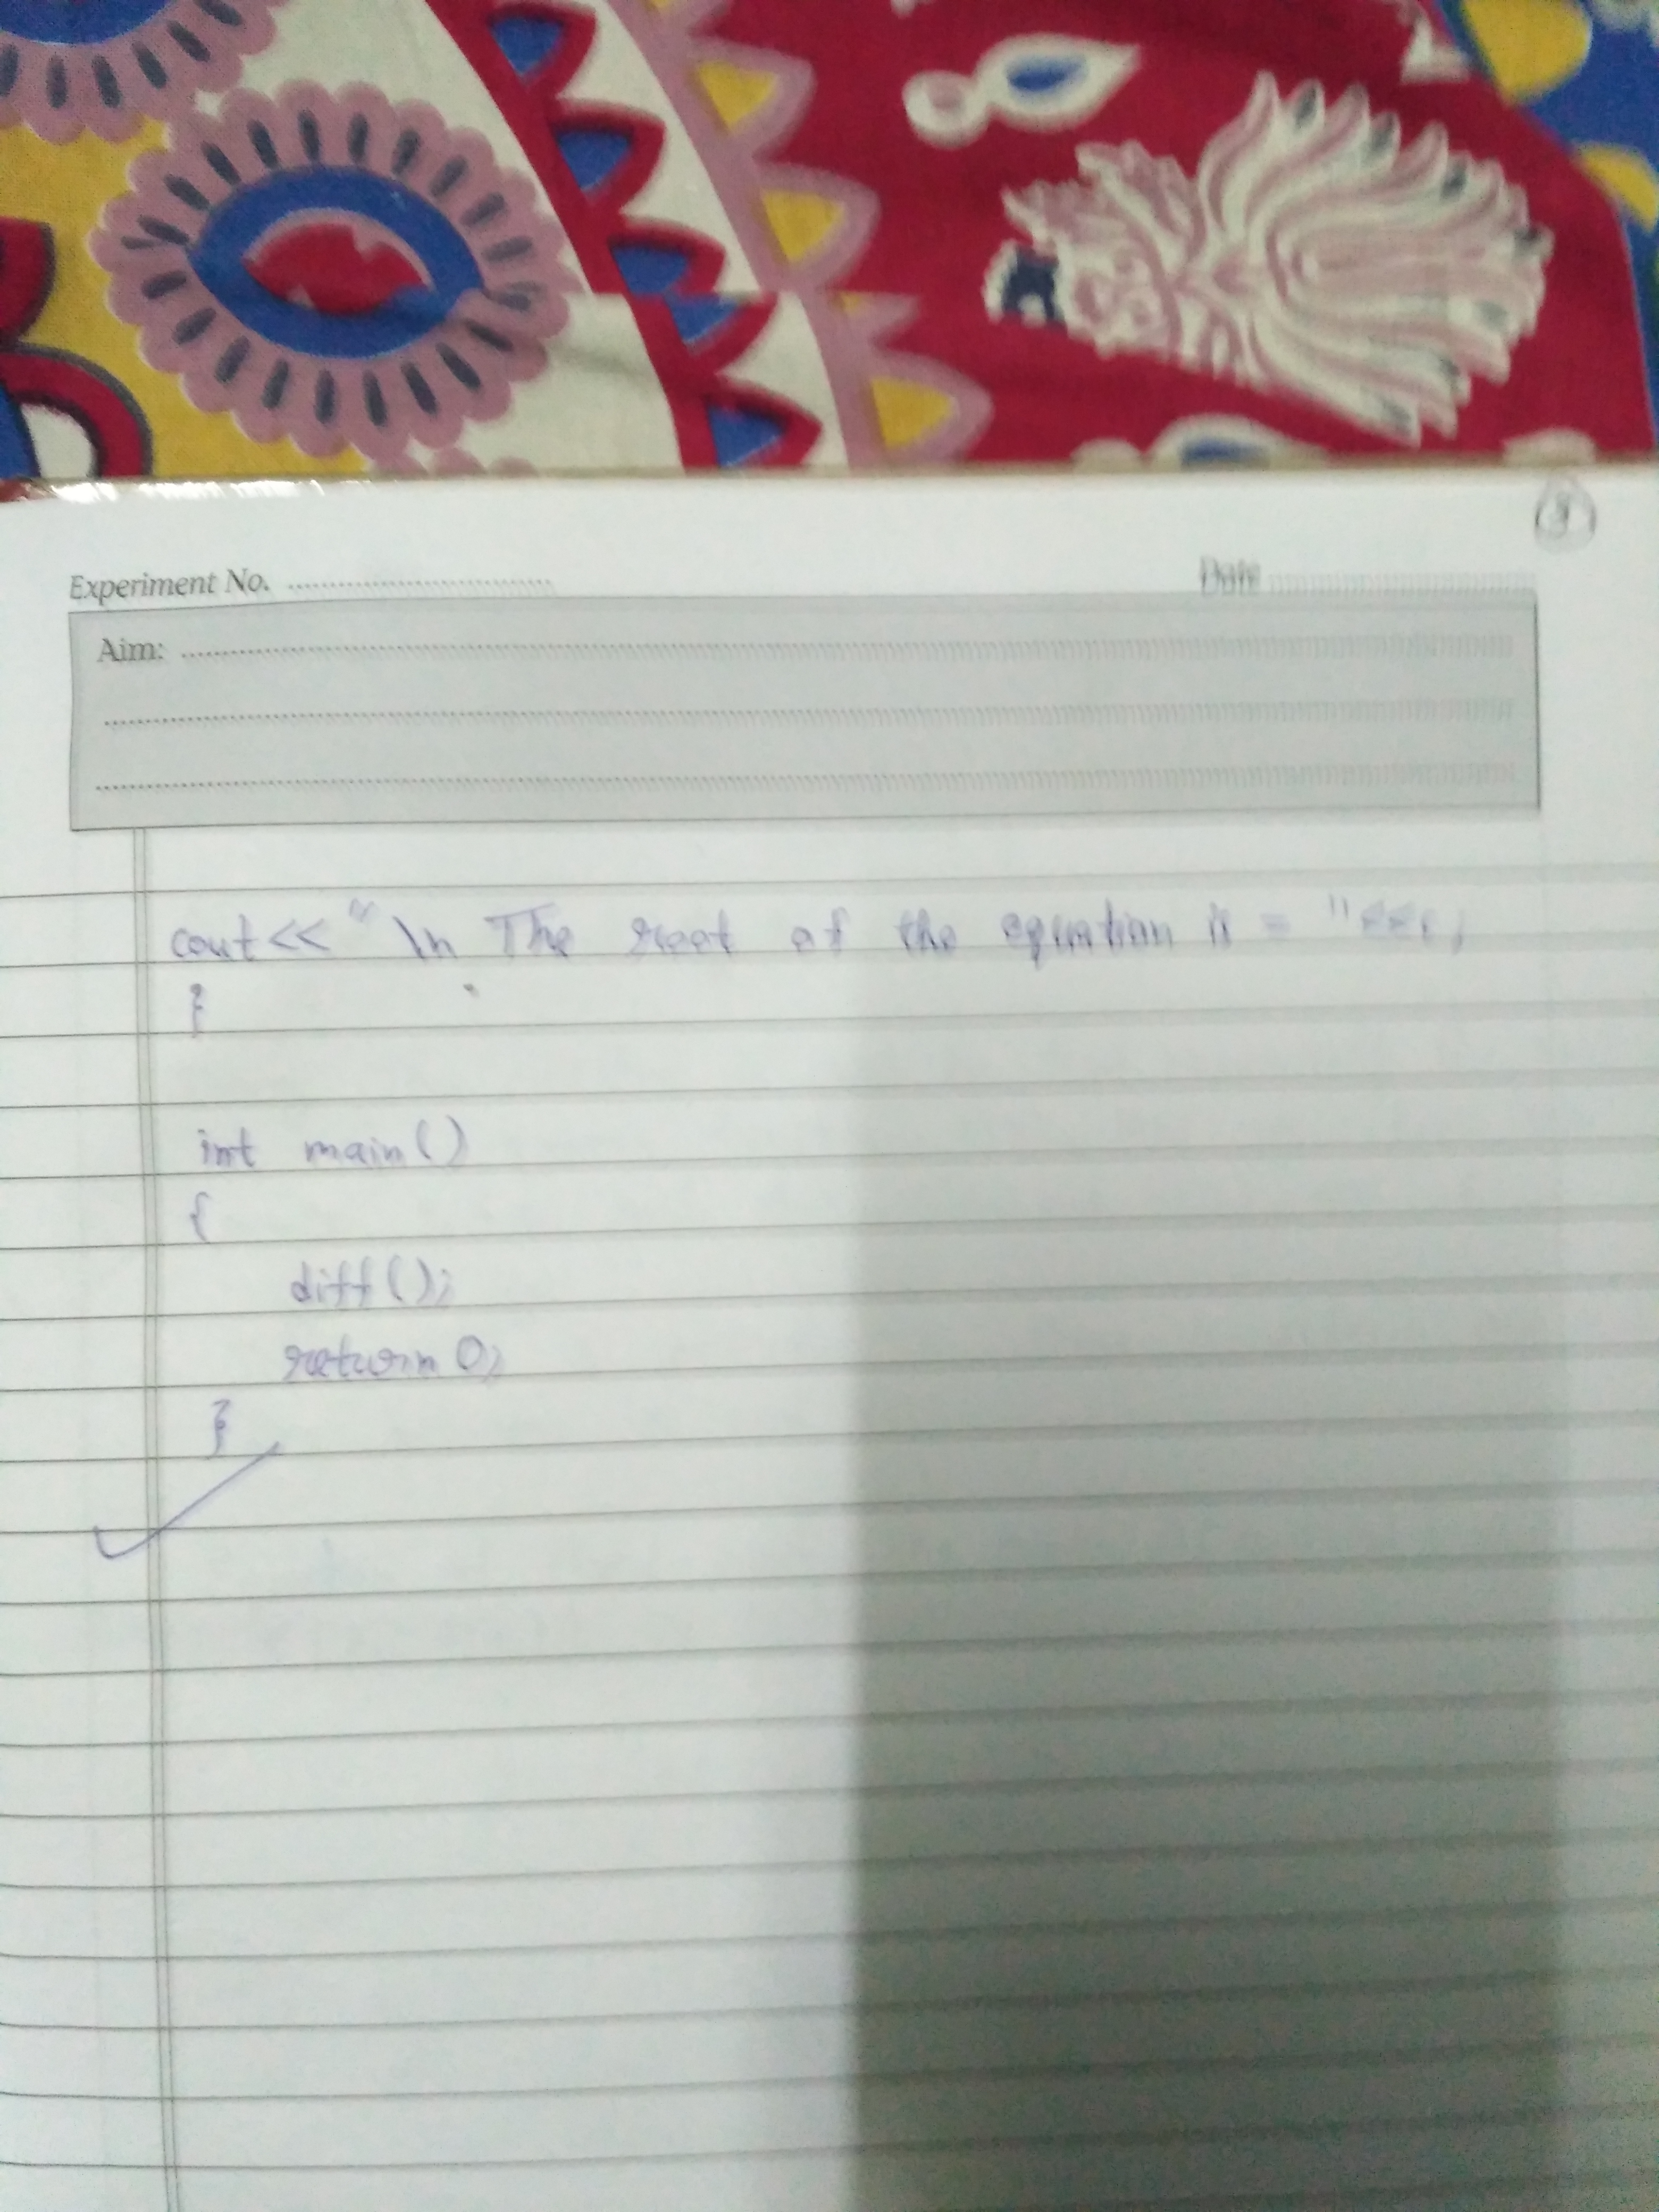 Experiment No.
Date
Aim:
cout<<"\n The root of the equation is = "<<
}
int main()
{
diff();
return 0;
}